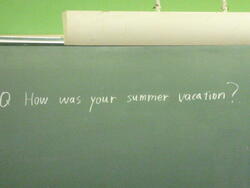 Q How was your summer vacation?